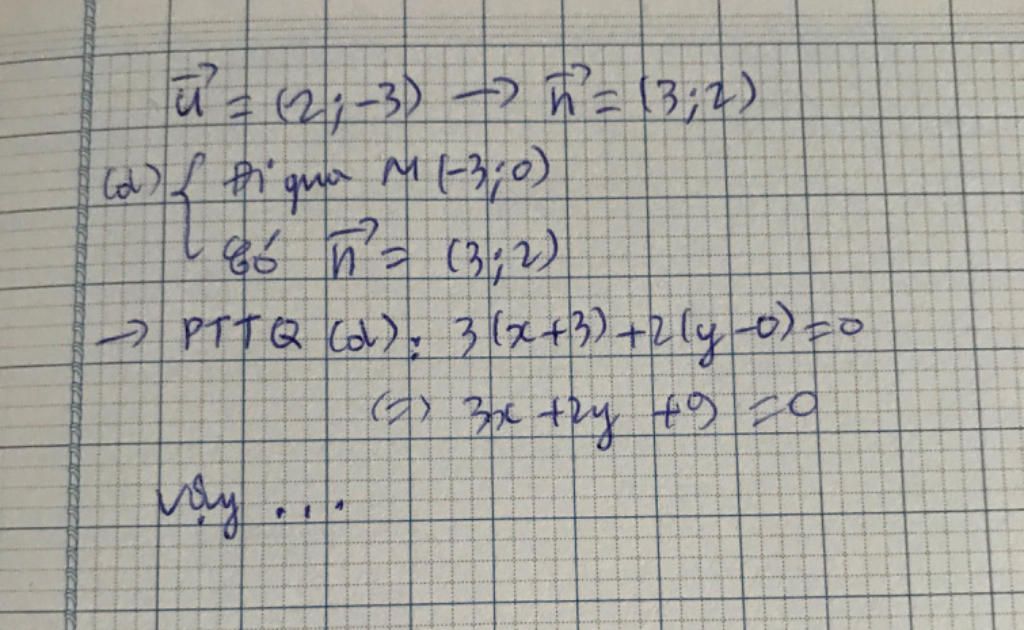 u⃗ = (2; -3) → n⃗ = (3; 2)
(d) { Đi qua M (-3; 0)
có n⃗ = (3; 2)
→ PTTQ (d): 3(x+3) + 2(y-0) = 0
(=) 3x + 2y + 9 = 0
Vậy ...